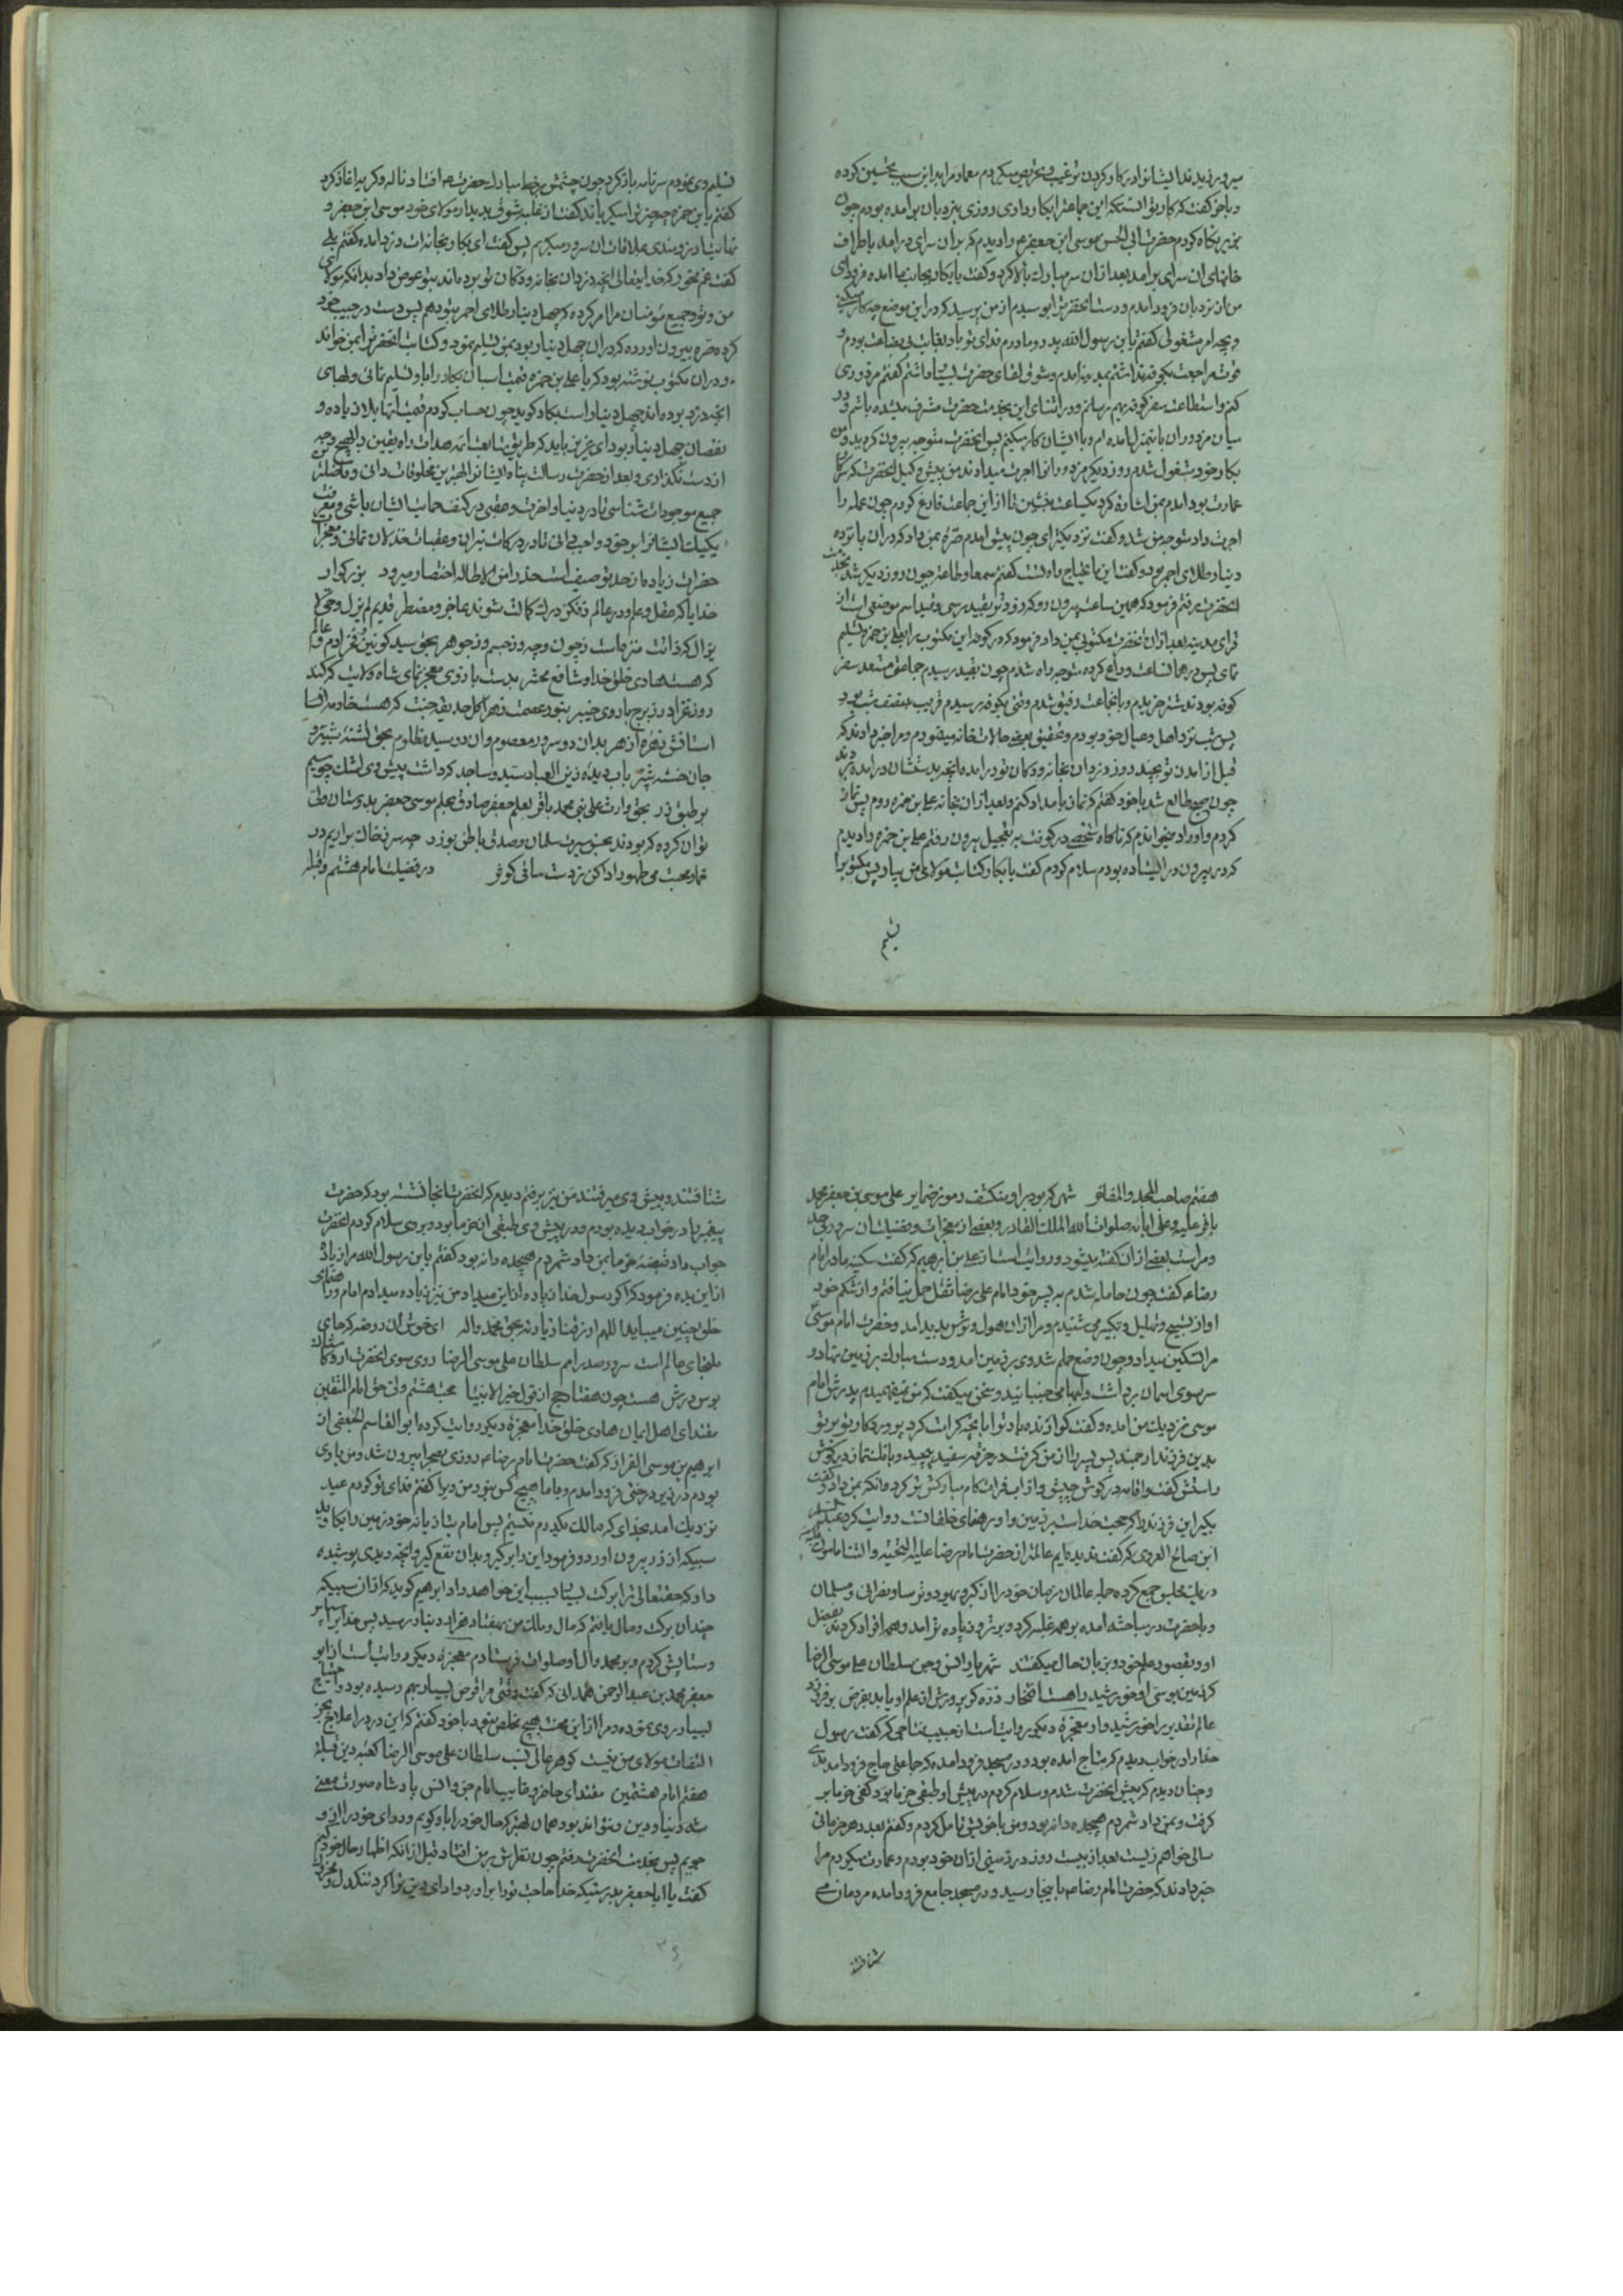 میورزیدند ایشانرا در کار کردن ترغیب و تحریص میکردم معمار مرا بدین سبب تحسین کرده
و با خود گفت که کار تو آنستکه این جماعترا بکار داری روزی بنردبان برآمده بودم چون
بزیر نگاه کردم حضرت ابی الحسن موسی ابن جعفر ع را دیدم که بدان سرای درآمد باطراف
خانهای آن سرای برآمد بعد از آن سر مبارک بالا کرد و گفت یا بکار بجانب ما آمده فرود آی
من از نردبان فرود آمدم و دست آنحضرترا بوسیدم از من پرسید که در این موضع چه کار میکنی
و بچه امر مشغولی گفتم یا بن رسول الله پدر و مادرم فدای تو باد بغایت بی بضاعت بودم و
قوت مراجعت بکوفه نداشتم بمدینه آمدم و شوق لقای حضرت بسیار داشتم گفتم مزدوری
کنم و استطاعت سفر کوفه بهم رسانم و در اثنای این بخدمت حضرت مشرف شده باشم و در
میان مزدوران باینمنزل آمده ام و با ایشان کار میکنم پس آنحضرت متوجه بیرون گردید و من
بکار خود مشغول شدم روز دیگر مزدورانرا اجرت میدادند من پیش وکیل آنحضرت که سرکار
عمارت بود آمدم بمن اشاره کرد یکساعت بنشین تا از این جماعت فارغ گردم چون عمله را
اجرت داد متوجه من شد و گفت نزدیکتر آی چون پیش آمدم صرهٔ بمن داد که در آن پانزده
دینار طلای احمر بود و گفت این مایحتاج راه تست گفتم سمعا و طاعة چون روز دیگر شد بخدمت
آنحضرت رفتم فرمود که همین ساعت بیرون رو که زود تر بفید رسی و فید اسم موضعی است از
قرای مدینه بعد از آن آنحضرت مکتوبی بمن داد فرمود که در کوفه این مکتوب را بعلی بن حمزه تسلیم
نمای پس در همانساعت وداع کرده متوجه راه شدم چون بفید رسیدم جماعتی مستعد سفر
کوفه بودند شتر خریدم و با آنجماعت رفیق شدم وقتی بکوفه رسیدم قریب بنصف شب بود
پس شب نزد اهل و عیال خود بودم و تحقیق بعضی حالات خانه مینمودم و مرا خبر دادند که
قبل از آمدن تو بچند روز دزدان بخانه و دکان تو درآمده آنچه بدستشان درآمده بردند
چون صبح طالع شد با خود گفتم که نماز بامداد کنم و بعد از آن بخانه علی بن حمزه روم پس نماز
کردم و اوراد میخواندم که ناگاه شخصی در کوفت به تعجیل بیرون رفتم علی بن حمزه را دیدم
که در بیرون در ایستاده بودم سلام کردم گفت یا بکار کتاب مولای من بیار پس مکتوبرا
تسلیم
تسلیم وی نمودم سرنامه باز کرد چون چشمش بر خط مبارک حضرت ع افتاد ناله و گریه آغاز کرد
گفتم یا بن حمزه چه چیز ترا میگریاند گفت از غلبه شوق بدیدار مولای خود موسی ابن جعفر و
نهایت آرزومندی بملاقات آن سرور میگریم پس گفت ای بکار بخانه ات دزد آمده گفتم بلی
گفت غم مخور که خدایتعالی آنچه دزدان بخانه و دکان تو بوده اند بتو عوض داد بدانکه مولای
من و تو و جمیع مؤمنان مرا امر کرده که چهل دینار طلای احمر بتو دهم پس دست در جیب خود
کرده صره بیرون آورده که در آن چهل دینار بود بمن تسلیم نمود و کتابت آنحضرترا بمن خواند
و در آن مکتوب نوشته بود که یا علی بن حمزه قیمت اسباب بکار را باو تسلیم نمائی و بهای
آنچه دزد برده اند چهل دینار است بکار گوید چون حساب کردم قیمت آنها بلا زیاده و
نقصان چهل دینار بود ای عزیز باید که طریق متابعت ائمه هدات راه یقین را بهیچ وجه
از دست نگذاری و بعد از حضرت رسالت پناه ایشانرا بهترین مخلوقات دانی و فاضلترین
جمیع موجودات شناسی تا در دنیا و آخرت و عقبی در کنف حمایت ایشان باشی و معرفت
یکیک ایشانرا بر خود واجب دانی تا در درکات نیران و عقبات خذلان نمانی و معجزات
حضرات زیاده از حد توصیف است حذرا من الاطاله اختصار میرود بزرگوار
خدایا که عقل و علم در عالم ز فکر درک کمالت شوند عاجز و مضطر قدیم لم یزل و حی لا
یزال که ذاتت منزه است ز چون و چه و ز جسم و ز جوهر بحق سید کونین و فخر آدم و عالم
که هست هادی خلق خدا و شافع محشر بدست بازوی معجز نمای شاه ولایت که کند
روز غزا در ز برج باروی خیبر بنور عصمت زهرا گل حدیقه جنت که هست خادمه اش آسا
جان خسته شبر بآب دیده زین العباد سید و ساجد که داشت پیش وی اشک چو سیم
بر طبق زر بحق وارث علم نبی محمد باقر بعلم جعفر صادق بحلم موسی جعفر بدوستان ولی
توان کرده که بودند بحسن سیرت سلمان و صدق باطن بوذر چه سر ز خاک برآریم در
خمار محبت می طهور ادا کن ز دست ساقی کوثر در فضیلت امام هشتم و قبله
هفتم صاحب المجد و المفاخر شهی که بود بر او منکشف رموز ضمایر علی موسی بن جعفر محمد
باقر علیه و علی آبائه صلوات الله الملک القادر و بعضی از معجزات و فضیلت آن سرور بی حد
و مراست بعضی از آن گفته میشود و روایت است از علی بن ابرهیم که گفت سکینه مادر امام
رضا ع گفت چون حامله شدم به پسر خود امام علی رضا ثقل حمل نیافتم و از شکم خود
آواز تسبیح و تهلیل و تکبیر می شنیدم و مرا از آن هول و ترس پدید آمد و حضرت امام موسی ع
مرا تسکین میداد و چون وضع حملم شد وی بر زمین آمد و دست مبارک بر زمین نهاد و
سر سوی آسمان برداشت و لبها می جنبانید و سخن میگفت که من نمیفهمیدم پدرش امام
موسی نزدیک من آمد و گفت گوارنده باد ترا بآنچه کرامت کرد پروردگار تو بر تو
بدین فرزند ارجمند پس پسر را از من گرفت در خرقه سفید پیچید و بانگ نماز در گوش
راستش گفت و اقامه در گوش چپش و از آب فرات کام مبارکش تر کرد و آنکه بمن داد و گفت
بگیر این فرزند را که حجت خداست بر زمین و او رهنمای خلقانست روایت کرد عبدالسلام
ابن صالح الهروی که گفت ندیده ایم عالمتر از حضرت امام رضا علیه التحیته و الثنا مامون علیه
در یک مجلس جمع کرده جمله عالمان زمان خود را از گبر و یهود و ترسا و نصرانی و مسلمان
و با حضرت در مباحثه آمده بر همه غلبه کرد و برتر و زیاده تر آمد و همه اقرار کردند بفضل
او و بقصور علم خود و بزبان حال میگفتند شهریار انس و جن سلطان علی موسی الرضا
عالم تقدیر را خورشید وار معجزهٔ دیگر روایت است از حبیب نباحی که گفت رسول
خدا را در خواب دیدم که بنباج آمده بود و در مسجد فرود آمده که جماعتی حاج فرود آمدندی
و چنان دیدم که پیش آنحضرت شدم و سلام کردم در پیش او طبقی خرما بود کفی خرما بر
گرفت و بمن داد شمردم هیجده دانه بود و من با خویش تامل کردم و گفتم بعدد هر خرمائی
سالی خواهم زیست بعد از بیست روز در زمینی از آن خود بودم و عمارت میکردم مرا
خبر دادند که حضرت امام رضا ع باینجا رسید و در مسجد جامع فرود آمده مردمان می
شتافتند
شتافتند و پیش وی میرفتند من نیز برفتم دیدم که آنحضرت آنجا نشسته بود که حضرت
پیغمبر را در خواب دیده بودم و در پیش وی طبقی از خرما بود و بر وی سلام کردم آنحضرت
جواب داد قبضهٔ خرما بمن داد شمردم هیجده دانه بود گفتم یا بن رسول الله مرا زیاده
از این بده فرمود که اگر رسول خدا زیاده از این میداد من نیز زیاده میدادم امام و رهنمای
خلق چنین میباید اللهم ارزقنا زیارته بحق محمد و آله ای خوش آن روضه که جای
ملجای عالم است سرور صدر امم سلطان علی موسی الرضا روی سوی آنحضرت آر و آستان
بوس درش هست چون هفتاد حج از قول خیر الانبیا حجت هشتم ولی حق امام المتقین
مقتدای اهل ایمان هادی خلق خدا معجزهٔ دیگر روایت کرده ابو القاسم الجعفی از
ابرهیم بن موسی القزاز که گفت حضرت امام رضا ع روزی بصحرا بیرون شد و من با وی
بودم در زیر درختی فرود آمدم و با ما هیچ کس نبود من ویرا گفتم فدای تو گردم عید
نزدیک آمد بخدای که مالک یکدرم نیستم پس امام بتازیانه خود زمین را بکاوید
سبیکه از زر بیرون آورد و فرمود این را بر گیر و بدان نفع گیر و آنچه دیدی پوشیده
دار که حقتعالی ترا برکت بسیار بسبب این خواهد داد ابرهیم گوید که از آن سبیکه
چندان برکت و مال یافتم که مال و ملک من بهفتاد هزار دینار رسید پس خدایرا سپاس
و ستایش کردم و بر محمد و آل او صلوات فرستادم معجزهٔ دیگر روایت است از ابو
جعفر محمد بن عبد الرحمن همدانی که گفت وقتی مرا قرض بسیار بهم رسیده بود و احتیاج
بسیار روی نموده و مرا از این محنت هیچ مخلص نبود با خود گفتم که این درد را علاج بجز
التفات مولای من نیست گوهر عالی نسب سلطان علی موسی الرضا کعبه دین قبلهٔ
هفتم امام هشتمین مقتدای حاضر و غایب امام جن و انس پادشاه صورت معنی
شه دنیا و دین و نتواند بود همان بهتر که حال خود را باو گویم و دوای خود را از او
جویم پس بخدمت آنحضرت رفتم چون نظرش بر من افتاد قبل از آنکه اظهار حال خود کنم
گفت یا ابا جعفر بدرستیکه خدا حاجت ترا برآورد و ادای دین ترا کرد تنگدل و
۳۶